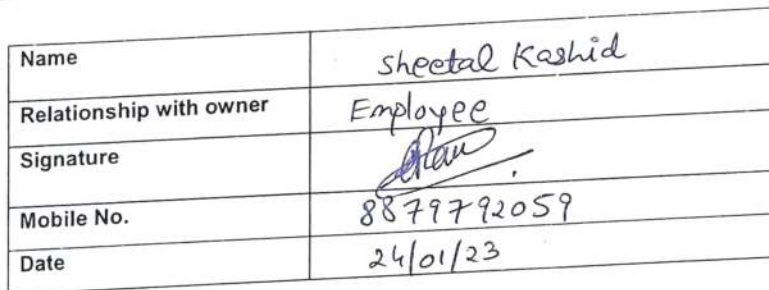 Name sheetal Kashid
Relationship with owner Employee
Signature
Mobile No. 8879792059
Date 24/01/23